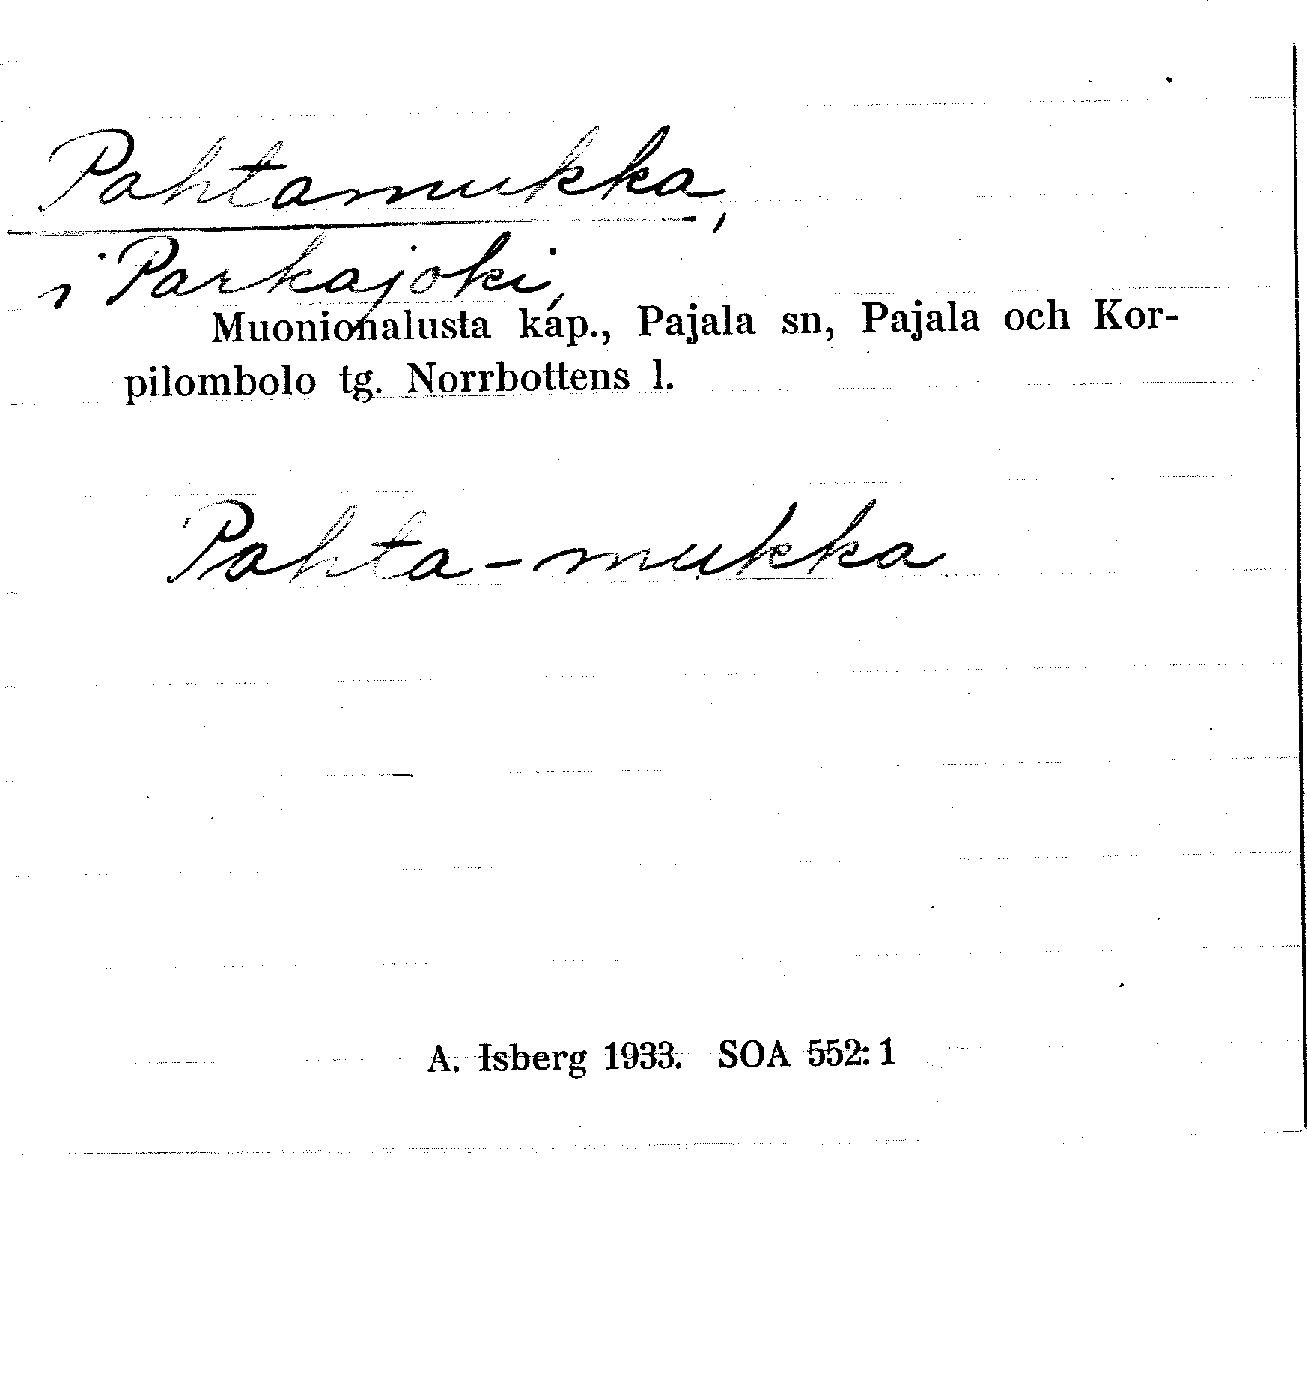 Pahtamukka,
i Parkajoki,
Muonionalusta kap., Pajala sn, Pajala och Kor-
pilombolo tg. Norrbottens l.
Pahta-mukka
A. Isberg 1933. SOA 552:1